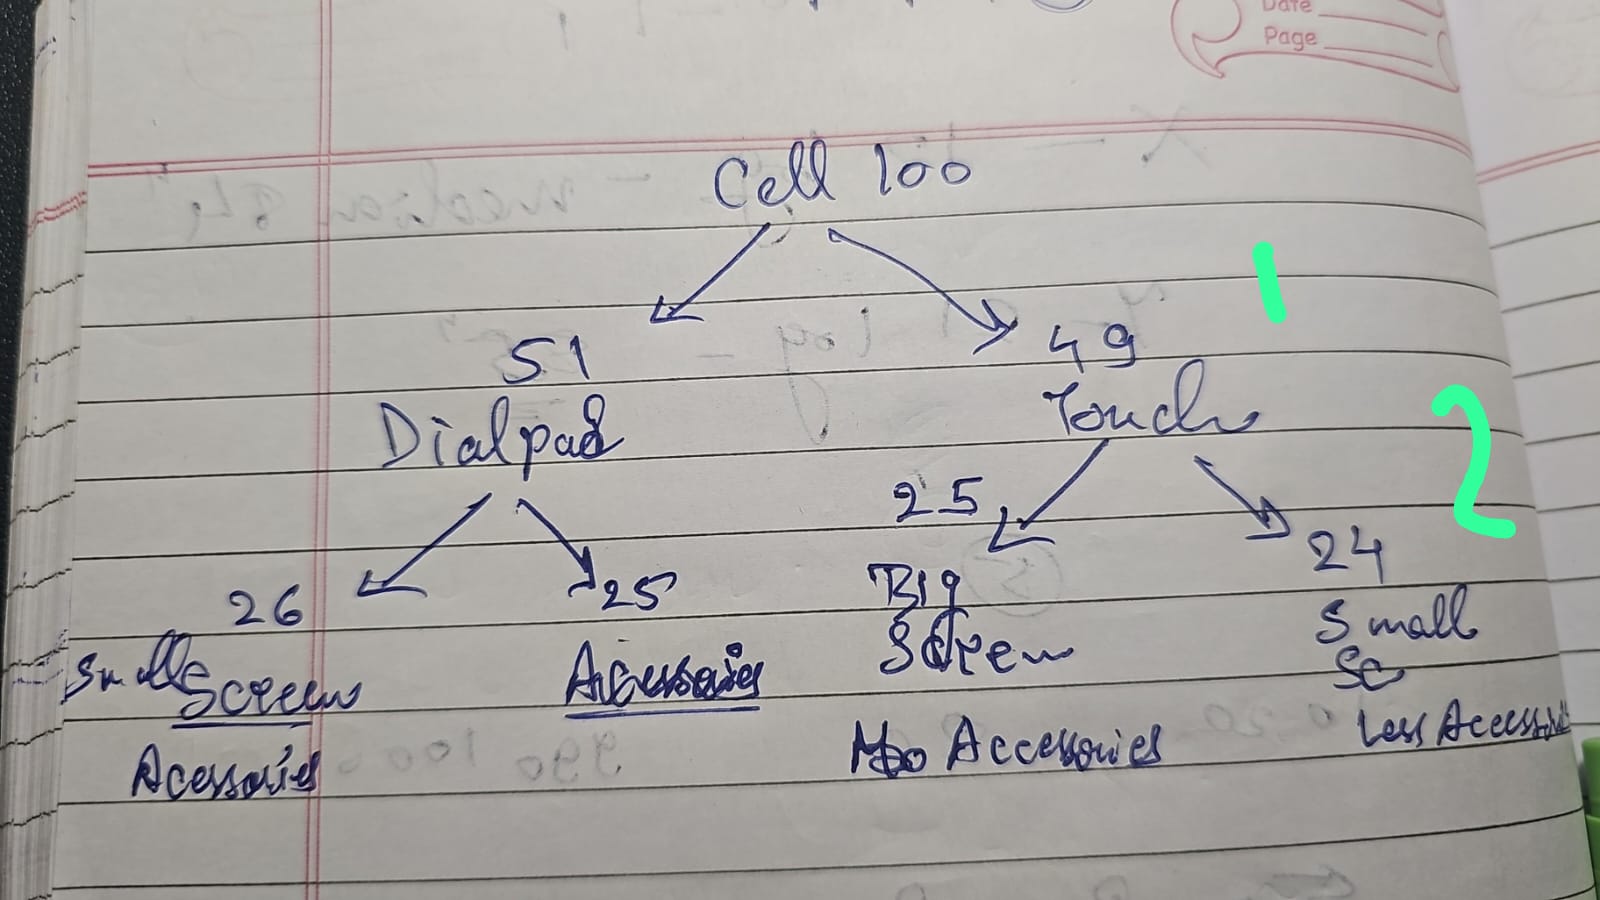 Date
Page
Cell 100
1
51
49
Dialpad
Touch
2
25
24
26
25
Big
Screen
Small
Sc
Small Screen
Acessories
Acessories
No Accessories
Less Accessories